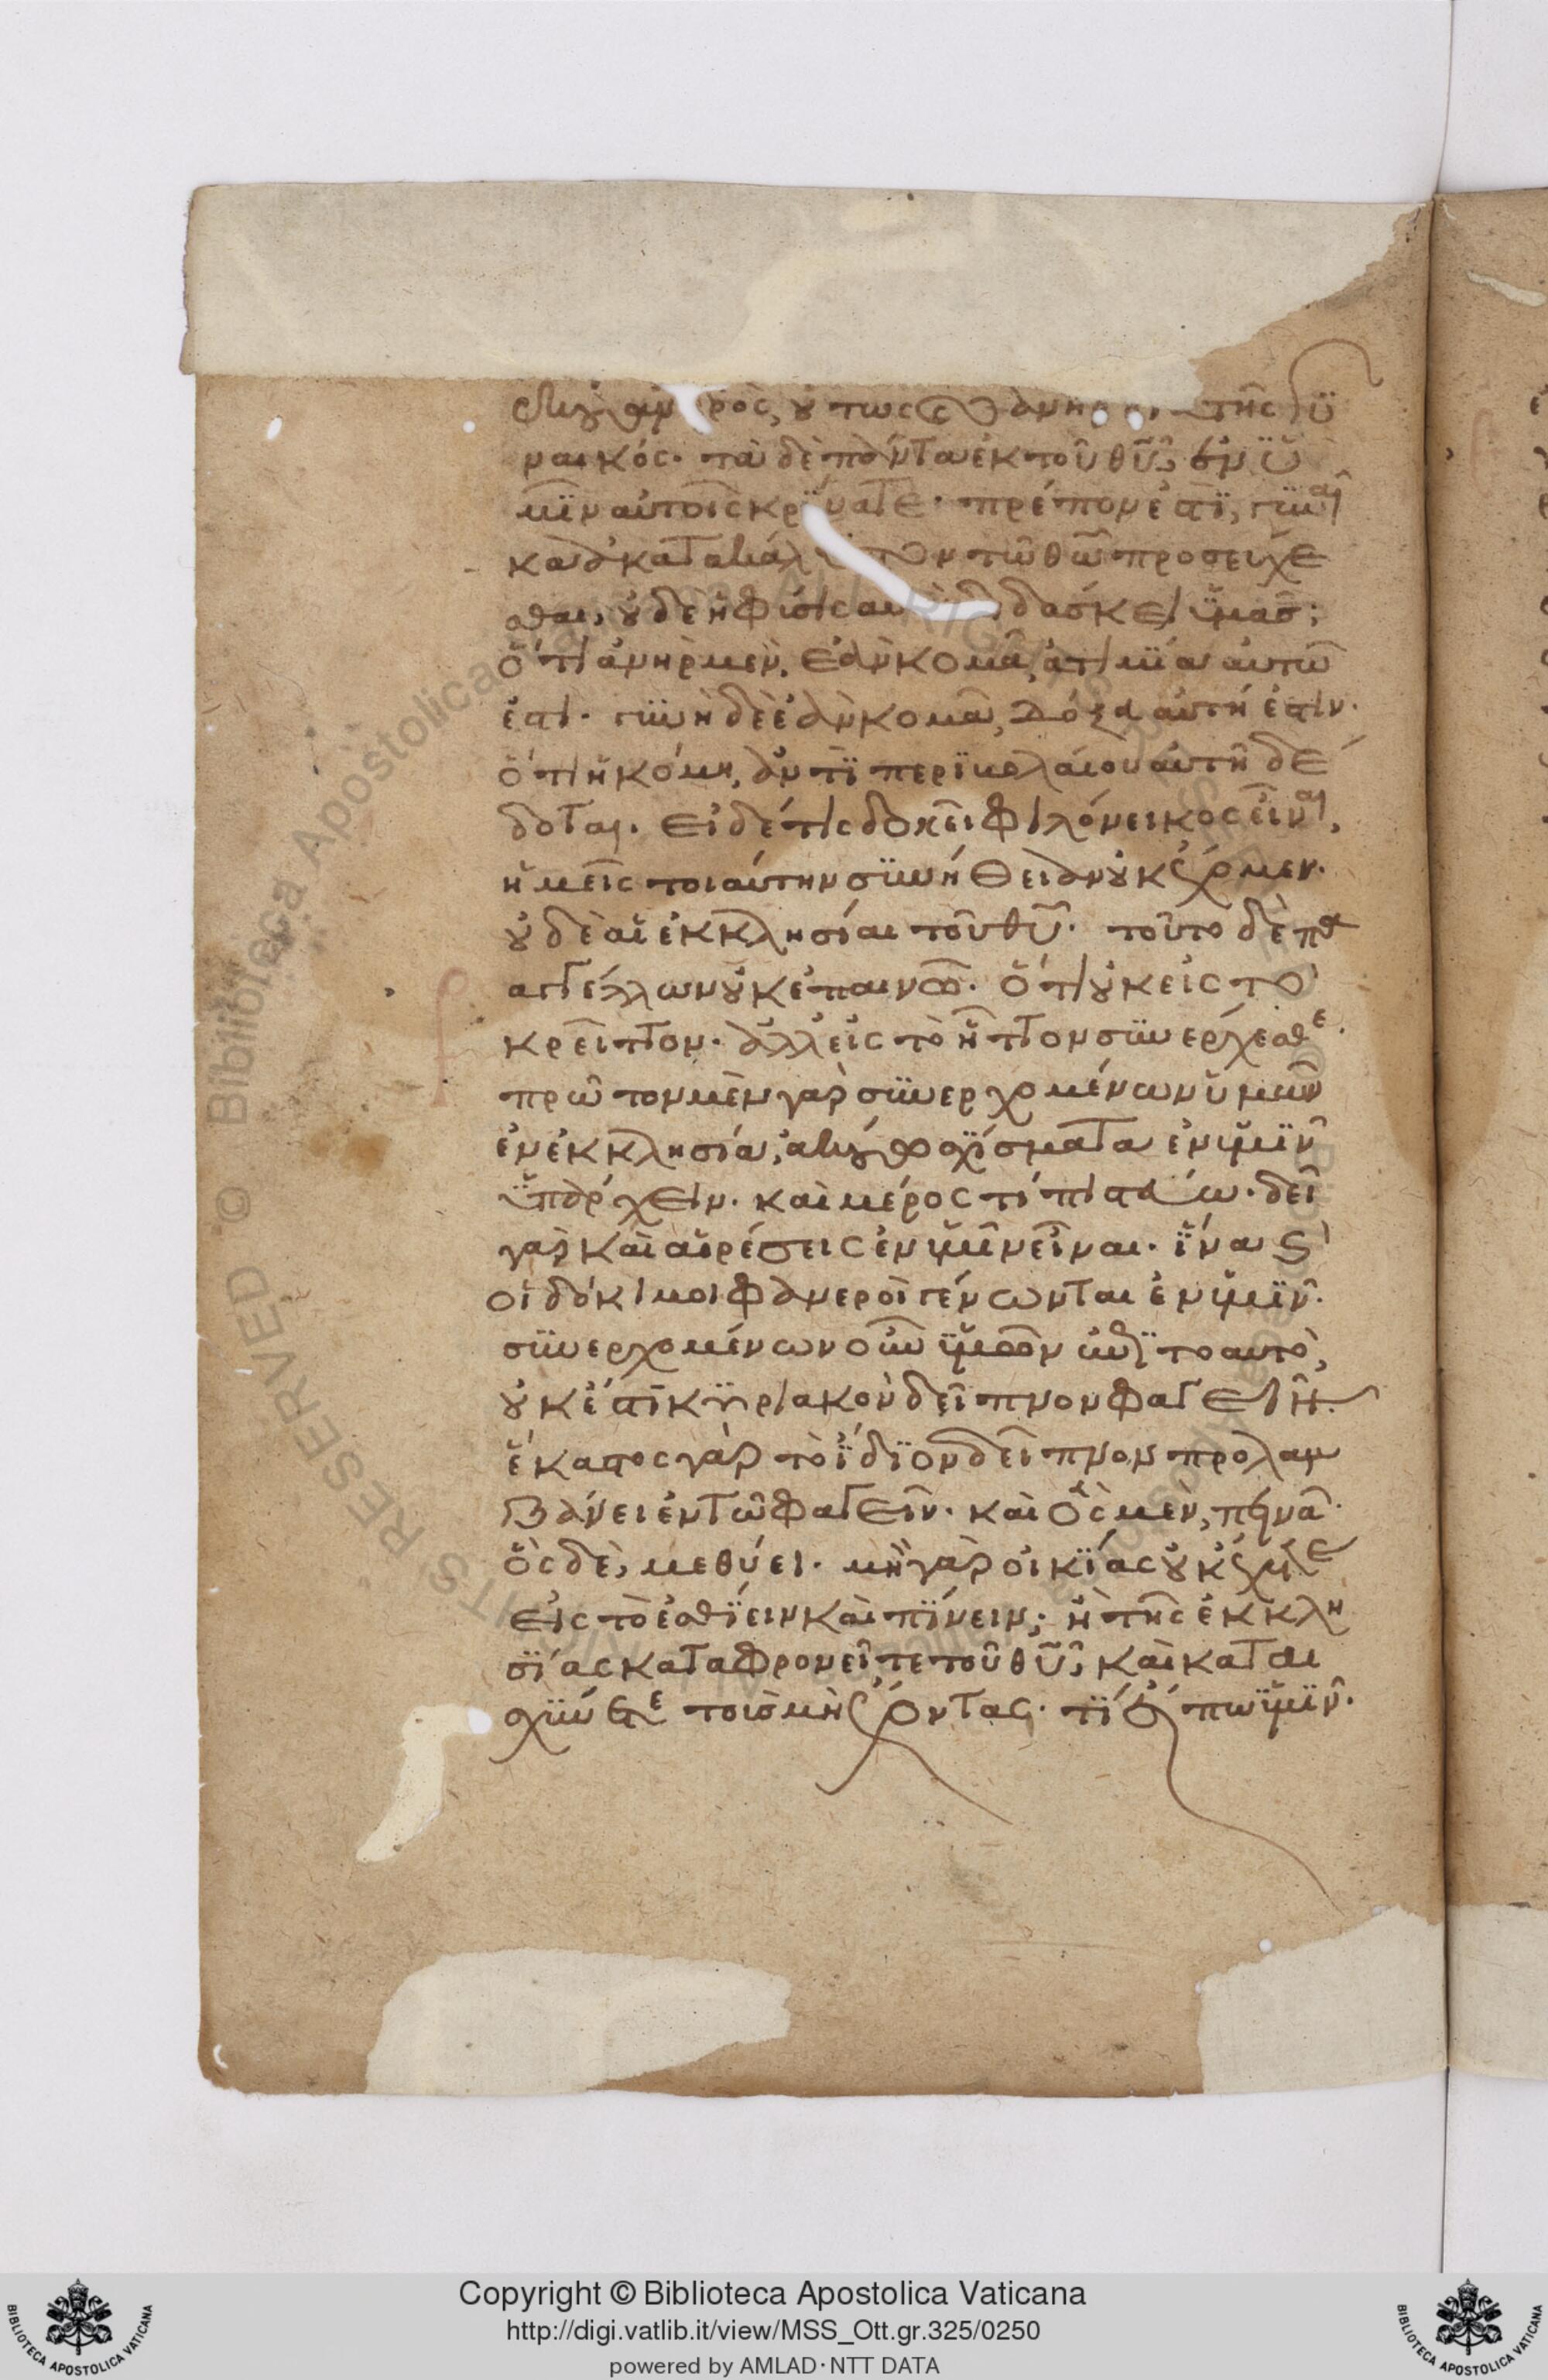 ἐκ τοῦ ἀνδρὸς, οὕτως καὶ ὁ ἀνὴρ διὰ τῆς γυ
ναικός· τὰ δὲ πάντα ἐκ τοῦ θυ̅, ἐν ὑ
μῖν αὐτοῖς κρίνατε· πρέπον ἐστὶ, γυναῖ
κα ἀκατακάλυπτον τῶ θω̅ προσεύχε
σθαι, οὐδὲ ἡ φύσις αὐτὴ διδάσκει ὑμᾶς;
ὅτι ἀνὴρ μὲν, ἐὰν κομᾶ, ἀτιμία αὐτῶ
ἐστι· γυνὴ δὲ ἐὰν κομᾶ, δόξα αὐτῆ ἐστιν·
ὅτι ἡ κόμη, ἀντὶ περιβολαίου αὐτῆ δέ
δοται· εἰ δέ τις δοκεῖ φιλόνεικος εἶναι,
ἡμεῖς τοιαύτην συνήθειαν οὐκ ἔχομεν·
οὐδὲ αἱ ἐκκλησίαι τοῦ θυ̅· τοῦτο δὲ πα
ραγγέλλων οὐκ ἐπαινῶ· ὅτι οὐκ εἰς τὸ
κρεῖττον· ἀλλ' εἰς τὸ ἧττον συνέρχεσθε·
πρῶτον μὲν γὰρ συνερχομένων ὑμῶν
ἐν ἐκκλησία, ἀκούω σχίσματα ἐν ὑμῖν
ὑπάρχειν· καὶ μέρος τι πιστεύω· δεῖ
γὰρ καὶ αἱρέσεις ἐν ὑμῖν εἶναι· ἵνα καὶ
οἱ δόκιμοι φανεροὶ γένωνται ἐν ὑμῖν·
συνερχομένων οὖν ὑμῶν ἐπὶ τὸ αυτὸ,
οὐκ ἔστι κυριακὸν δεῖπνον φαγεῖν·
ἕκαστος γὰρ τὸ ἴδιον δεῖπνον προλαμ
βάνει ἐν τῶ φαγεῖν· καὶ ὃς μὲν, πεινᾶ·
ὃς δὲ, μεθύει· μὴ γὰρ οἰκίας οὐκ ἔχετε
εἰς τὸ ἐσθίειν καὶ πίνειν; ἢ τῆς ἐκκλη
σίας καταφρονεῖτε τοῦ θυ̅, καὶ καται
σχύνετε τοὺς μὴ ἔχοντας· τί εἴπω ὑμῖν·
Copyright © Biblioteca Apostolica Vaticana
http://digi.vatlib.it/view/MSS_Ott.gr.325/0250
powered by AMLAD·NTT DATA
BIBLIOTECA APOSTOLICA VATICANA
BIBLIOTECA APOSTOLICA VATICANA